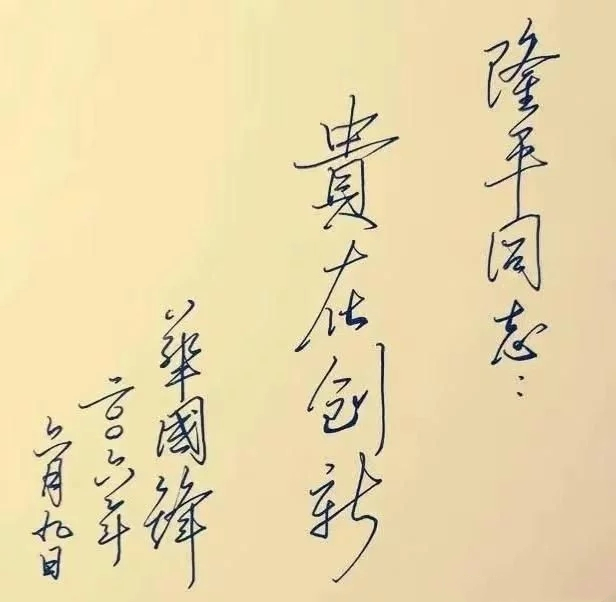 隆平同志:
貴在创新
華國鋒
二〇〇六年
六月九日